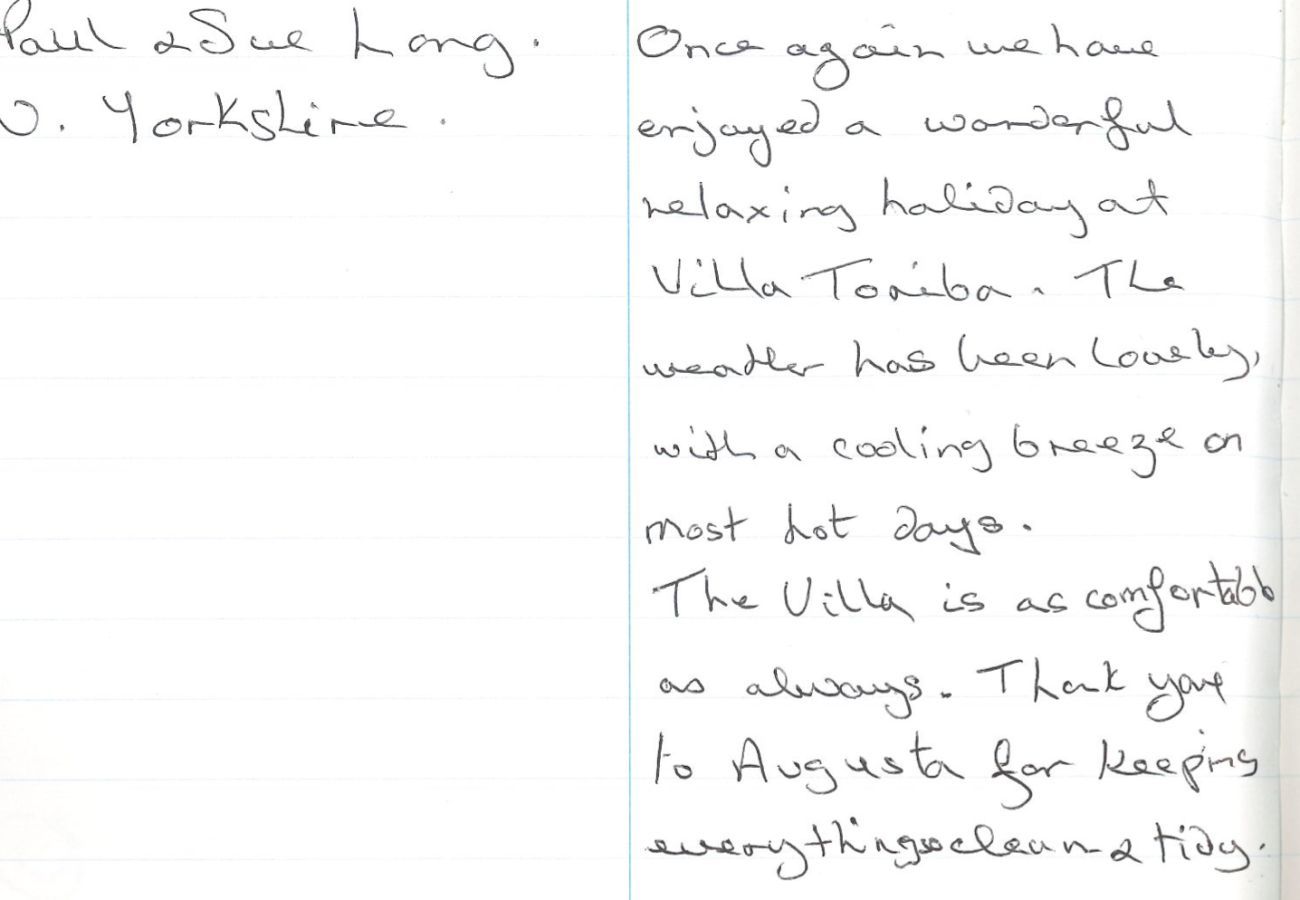 Paul & Sue Long.
. Yorkshire.
Once again we have
enjoyed a wonderful
relaxing holiday at
Villa Toriba. The
weather has been lovely,
with a cooling breeze on
most hot days.
The Villa is as comfortable
as always. Thank you
to Augusta for keeping
everything clean & tidy.